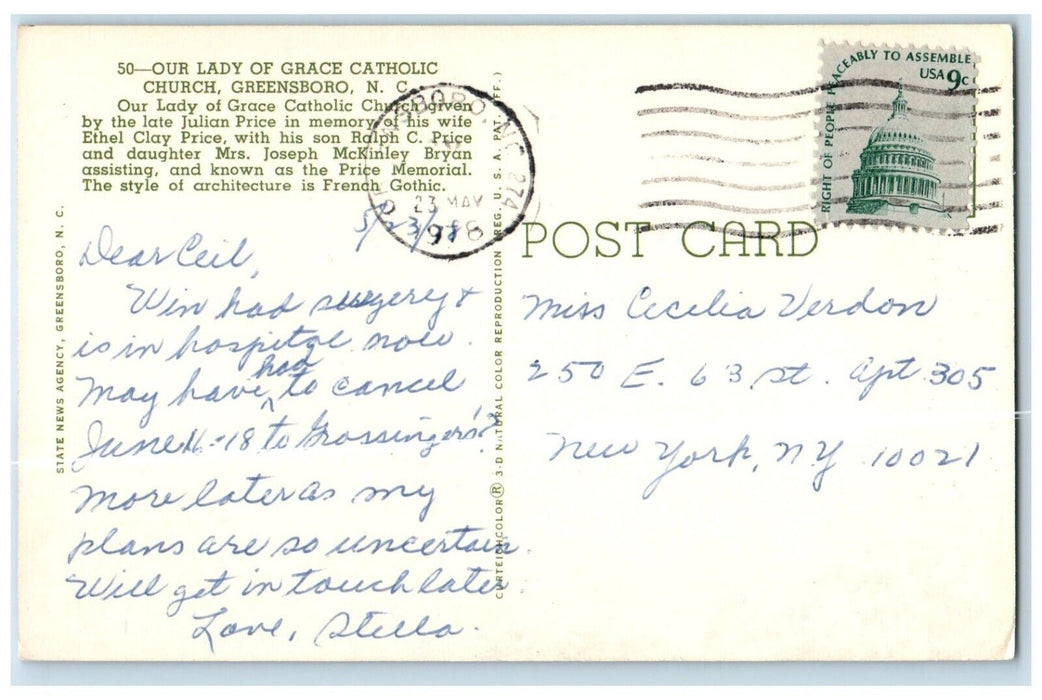 50—OUR LADY OF GRACE CATHOLIC
CHURCH, GREENSBORO, N. C.
Our Lady of Grace Catholic Church given
by the late Julian Price in memory of his wife
Ethel Clay Price, with his son Ralph C. Price
and daughter Mrs. Joseph McKinley Bryan
assisting, and known as the Price Memorial.
The style of architecture is French Gothic.
STATE NEWS AGENCY, GREENSBORO, N. C.
5/23/78
Dear Ceil,
Win had surgery &
is in hospital now.
had
May have to cancel
June 16-18 to Grossingers!?
More later as my
plans are so uncertain.
Will get in touch later.
Love, Stella.
CURTEICHCOLOR® 3-D NATURAL COLOR REPRODUCTION REG. U. S. A. PAT. OFF.)
N.C. 274
23 MAY
1978
POST CARD
RIGHT OF PEOPLE PEACEABLY TO ASSEMBLE
USA 9c
Miss Cecelia Verdon
250 E. 63 st. Apt 305
New York, NY 10021